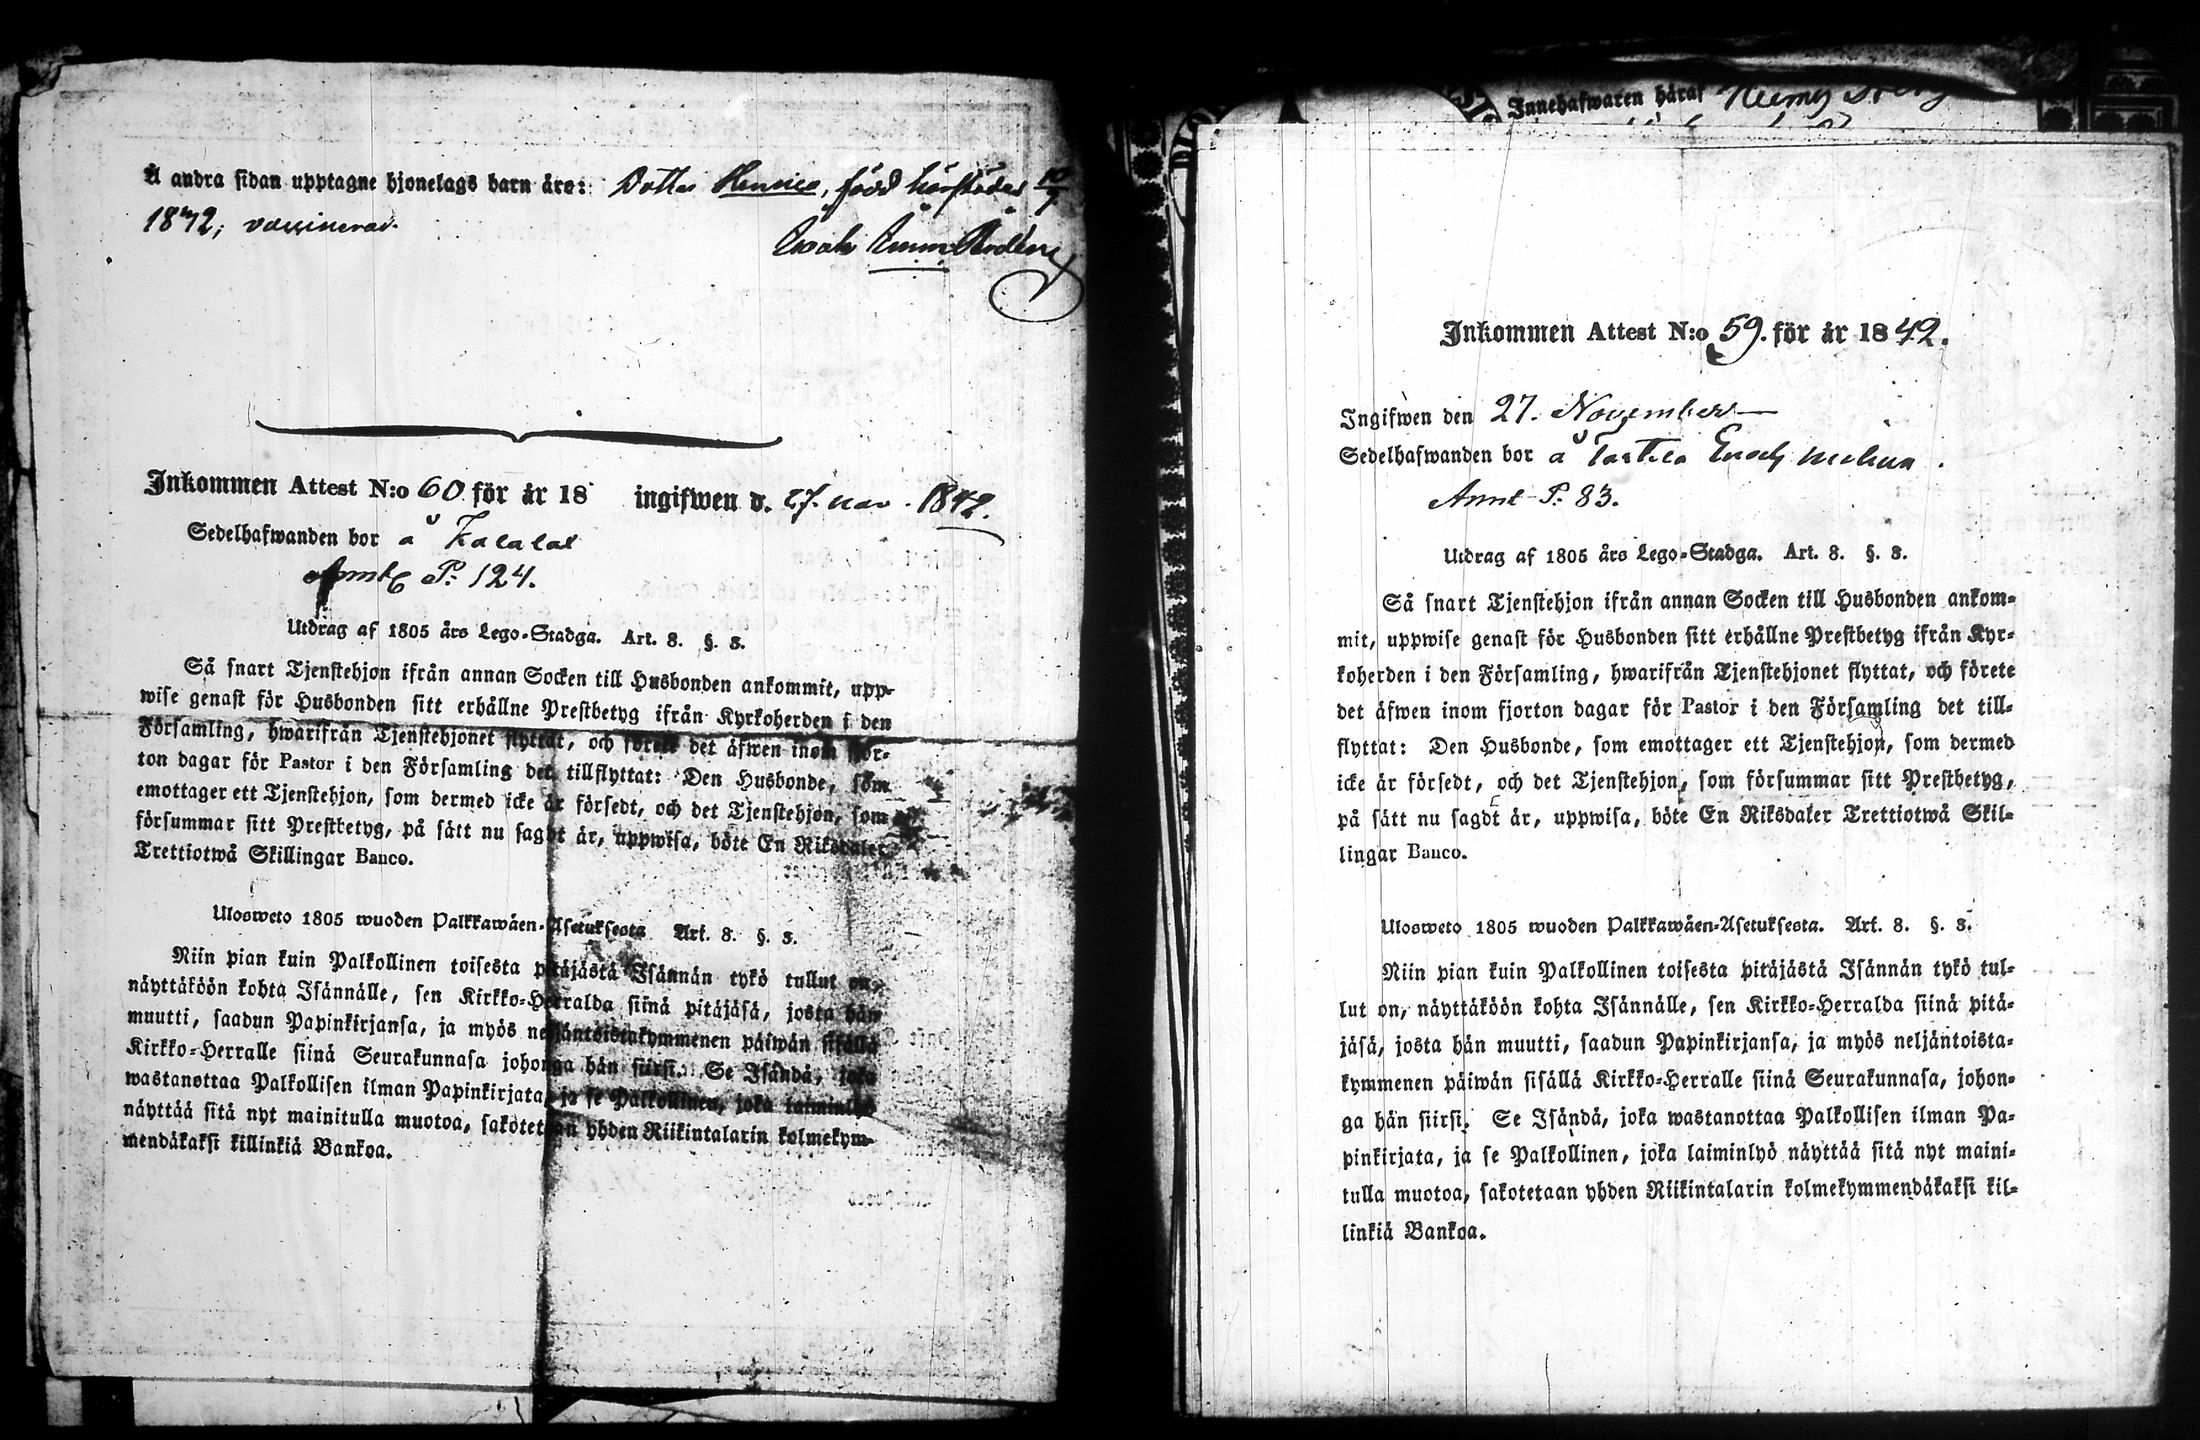 Å andra sidan upptagne hjonelags barn äro: Dotter född härstädes 10/7
1842; vaccinerad.
Inkommen Attest N:o 60 för år 18 ingifwen d. 27. nov. 1842.
Sedelhafwanden bor å
Annt P. 124.
Utdrag af 1805 års Lego-Stadga. Art. 8. §. 3.
Så snart Tjenstehjon ifrån annan Socken till Husbonden ankommit, upp-
wise genast för Husbonden sitt erhållne Prestbetyg ifrån Kyrkoherden i den
Församling, hwarifrån Tjenstehjonet flyttat, och förete det äfwen inom fjor-
ton dagar för Pastor i den Församling det tillflyttat: Den Husbonde, som
emottager ett Tjenstehjon, som dermed icke är försedt, och det Tjenstehjon, som
försummar sitt Prestbetyg, på sätt nu sagdt är, uppwisa, böte En Riksdaler
Trettiotwå Skillingar Banco.
Ulosweto 1805 wuoden Palkkawäen-Asetuksesta Art. 8. §. 3.
Niin pian kuin Palkollinen toisesta pitäjästä Isännän tykö tullut on,
näyttäköön kohta Isännälle, sen Kirkko-Herralda siinä pitäjäsä, josta hän
muutti, saadun Papinkirjansa, ja myös neljäntoistakymmenen päiwän sisällä
Kirkko-Herralle siinä Seurakunnasa johonga hän siirsi. Se Isändä, joka
wastanottaa Palkollisen ilman Papinkirjata, ja se Palkollinen, joka laiminlyö
näyttää sitä nyt mainitulla muotoa, sakotetaan yhden Riikintalarin kolmekym-
mendäkaksi killinkiä Bankoa.
Innehafwaren häraf
Inkommen Attest N:o 59. för år 1842.
Ingifwen den 27. November
Sedelhafwanden bor å
Annt P. 83.
Utdrag af 1805 års Lego-Stadga. Art. 8. §. 3.
Så snart Tjenstehjon ifrån annan Socken till Husbonden ankom-
mit, uppwise genast för Husbonden sitt erhållne Prestbetyg ifrån Kyr-
koherden i den Församling, hwarifrån Tjenstehjonet flyttat, och förete
det äfwen inom fjorton dagar för Pastor i den Församling det till-
flyttat: Den Husbonde, som emottager ett Tjenstehjon, som dermed
icke är försedt, och det Tjenstehjon, som försummar sitt Prestbetyg,
på sätt nu sagdt är, uppwisa, böte En Riksdaler Trettiotwå Skil-
lingar Banco.
Ulosweto 1805 wuoden Palkkawäen-Asetuksesta. Art. 8. §. 3.
Niin pian kuin Palkollinen toisesta pitäjästä Isännän tykö tul-
lut on, näyttäköön kohta Isännälle, sen Kirkko-Herralda siinä pitä-
jäsä, josta hän muutti, saadun Papinkirjansa, ja myös neljäntoista-
kymmenen päiwän sisällä Kirkko-Herralle siinä Seurakunnasa, johon-
ga hän siirsi. Se Isändä, joka wastanottaa Palkollisen ilman Pa-
pinkirjata, ja se Palkollinen, joka laiminlyö näyttää sitä nyt maini-
tulla muotoa, sakotetaan yhden Riikintalarin kolmekymmendäkaksi kil-
linkiä Bankoa.